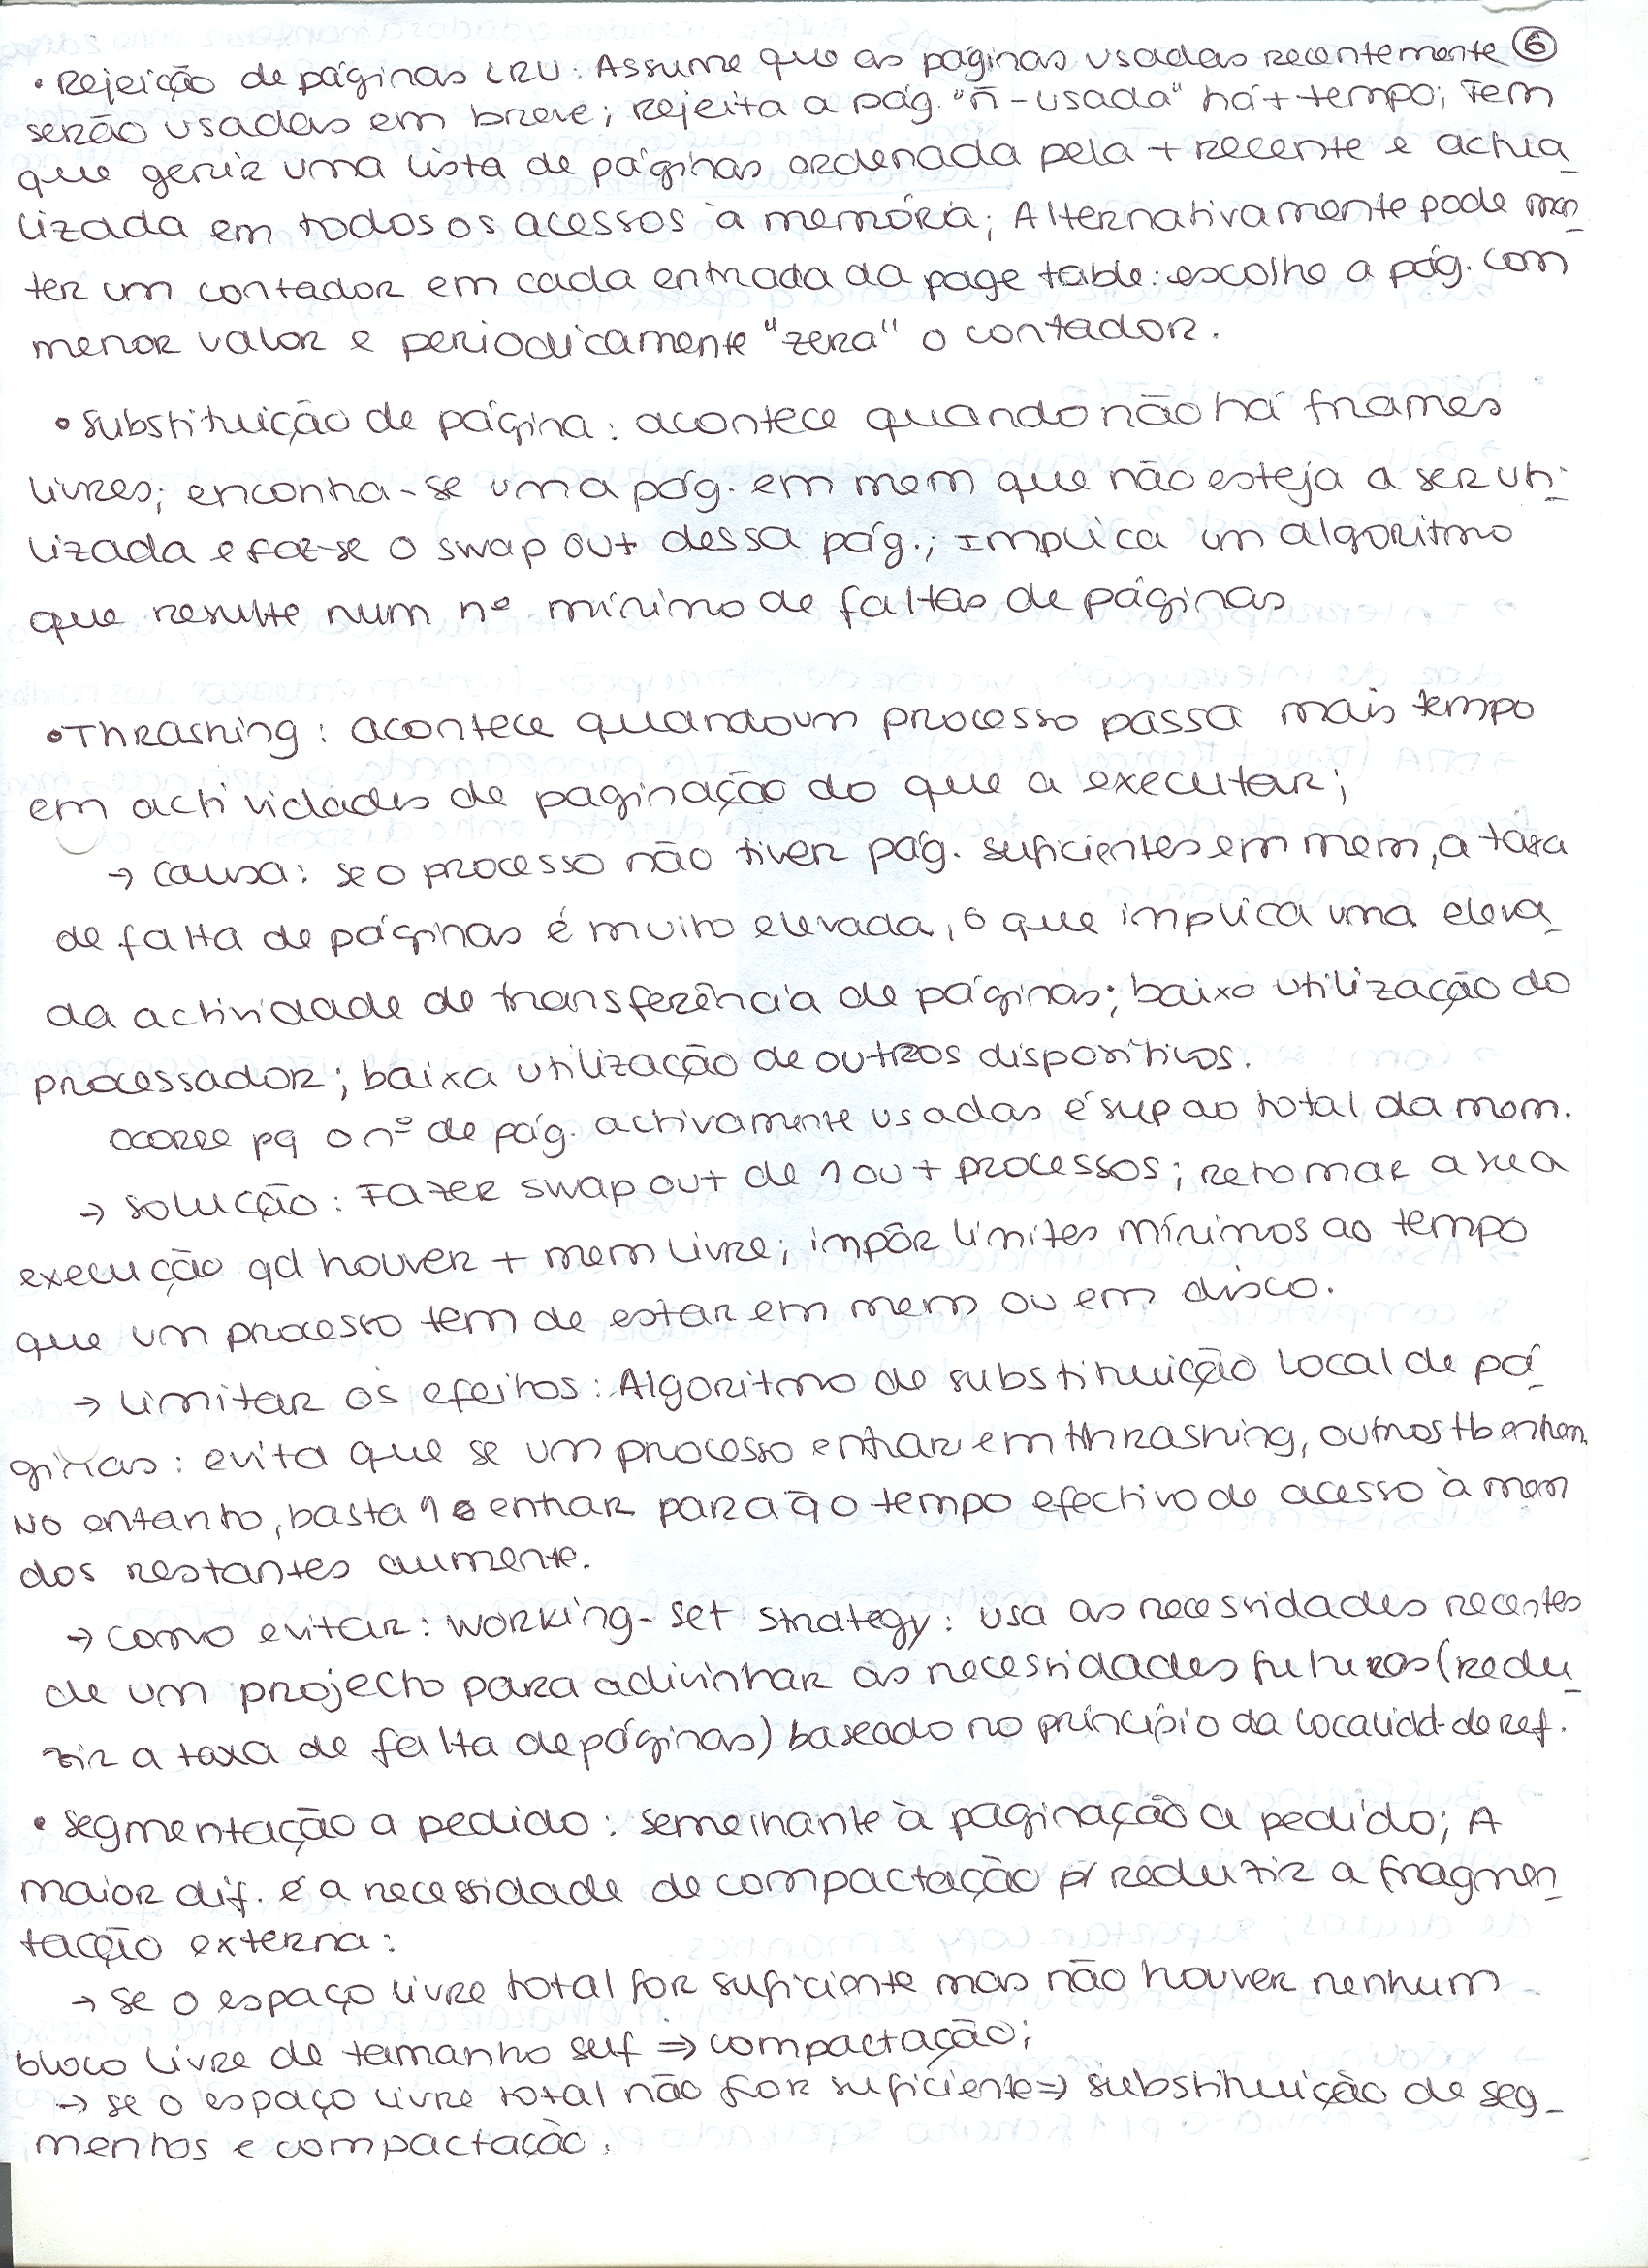 • Rejeição de páginas LRU: Assume que as páginas usadas recentemente ⑥
serão usadas em breve; rejeita a pág. "ñ-usada" há + tempo; Tem
que gerir uma lista de páginas ordenada pela + recente e actua_
lizada em todos os acessos à memória; Alternativamente pode man_
ter um contador em cada entrada da page table: escolhe a pág. com
menor valor e periodicamente "zera" o contador.
• Substituição de página: acontece quando não há frames
livres; encontra-se uma pág. em mem que não esteja a ser uti-
lizada e faz-se o swap out dessa pág.; Implica um algoritmo
que resulte num nº mínimo de faltas de páginas
• Thrashing: acontece quando um processo passa mais tempo
em actividades de paginação do que a executar;
→ causa: se o processo não tiver pág. suficientes em mem, a taxa
de falta de páginas é muito elevada, o que implica uma eleva_
da actividade de transferência de páginas; baixa utilização do
processador; baixa utilização de outros dispositivos.
ocorre pq o nº de pág. activamente usadas é sup ao total da mem.
→ solução: Fazer swap out de 1 ou + processos; retomar a sua
execução qd houver + mem livre; impôr limites mínimos ao tempo
que um processo tem de estar em mem ou em disco.
→ limitar os efeitos: Algoritmo de substituição local de pá_
ginas: evita que se um processo entrar em thrashing, outros tb entrem.
No entanto, basta 1 entrar para q o tempo efectivo de acesso à mem
dos restantes aumente.
→ como evitar: working-set strategy: usa as necessidades recentes
de um projecto para adivinhar as necessidades futuras (redu_
zir a taxa de falta de páginas) baseado no princípio da localidd. de ref.
• segmentação a pedido: semelhante à paginação a pedido; A
maior dif. é a necessidade de compactação p/ reduzir a fragmen_
tação externa:
→ se o espaço livre total for suficiente mas não houver nenhum
bloco livre de tamanho suf ⇒ compactação;
→ se o espaço livre total não for suficiente ⇒ substituição de seg_
mentos e compactação.